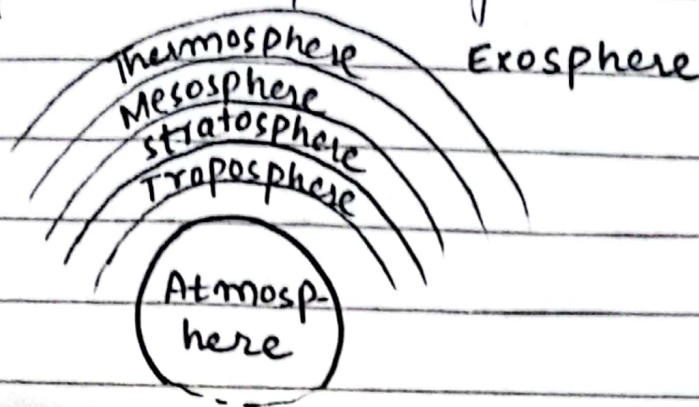 Thermosphere
Exosphere
Mesosphere
stratosphere
Troposphere
Atmosp-
here